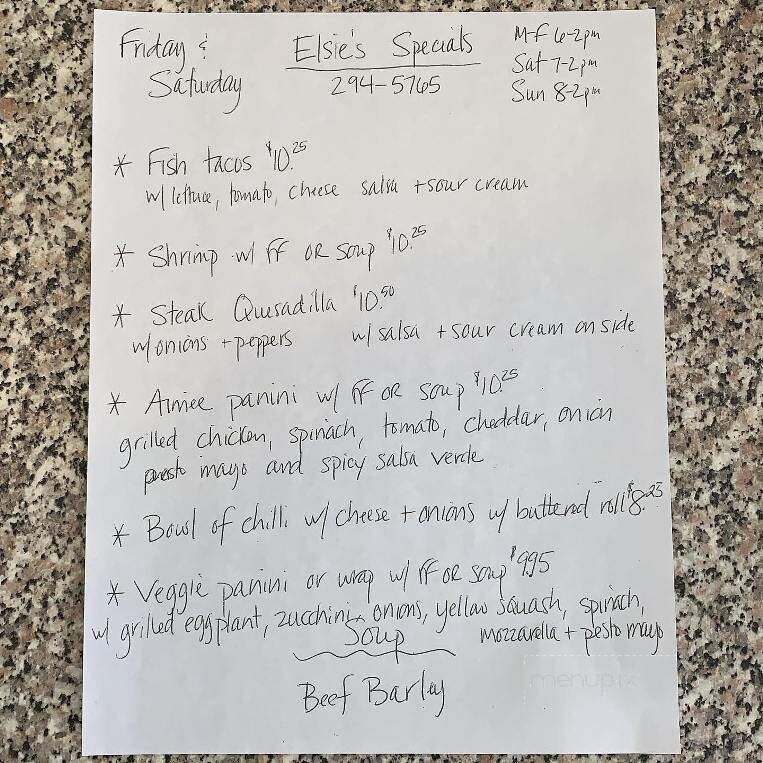 Friday & Saturday
Elsie's Specials
294-5765
M-F 6-2pm
Sat 7-2pm
Sun 8-2pm
* Fish tacos $10.25
w/ lettuce, tomato, cheese salsa + sour cream
* Shrimp w/ FF OR Soup $10.25
* Steak Qusadilla $10.50
w/onions + peppers w/ salsa + sour cream on side
* Aimee panini w/ FF OR soup $10.25
grilled chicken, spinach, tomato, cheddar, onion
pesto mayo and spicy salsa verde
* Bowl of chili w/ cheese + onions w/ buttered roll $8.25
* Veggie panini or wrap w/ FF OR soup $9.95
w/ grilled eggplant, zucchini, onions, yellow squash, spinach,
mozzarella + pesto mayo
Soup
Beef Barley
menupix